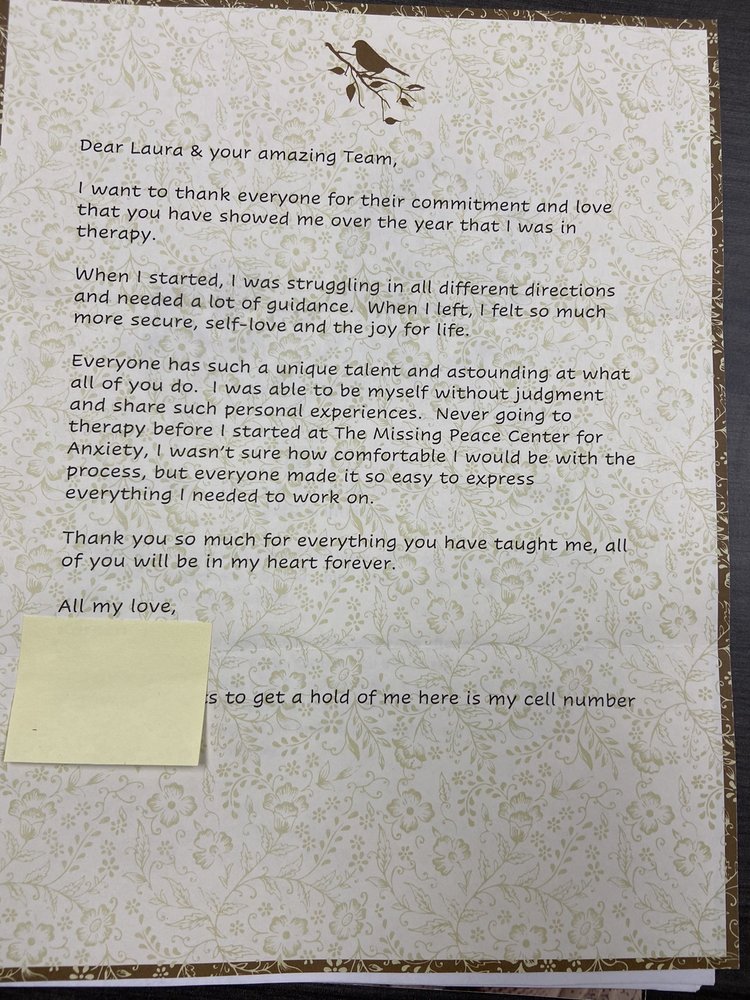 Dear Laura & your amazing Team,
I want to thank everyone for their commitment and love
that you have showed me over the year that I was in
therapy.
When I started, I was struggling in all different directions
and needed a lot of guidance. When I left, I felt so much
more secure, self-love and the joy for life.
Everyone has such a unique talent and astounding at what
all of you do. I was able to be myself without judgment
and share such personal experiences. Never going to
therapy before I started at The Missing Peace Center for
Anxiety, I wasn't sure how comfortable I would be with the
process, but everyone made it so easy to express
everything I needed to work on.
Thank you so much for everything you have taught me, all
of you will be in my heart forever.
All my love,
to get a hold of me here is my cell number